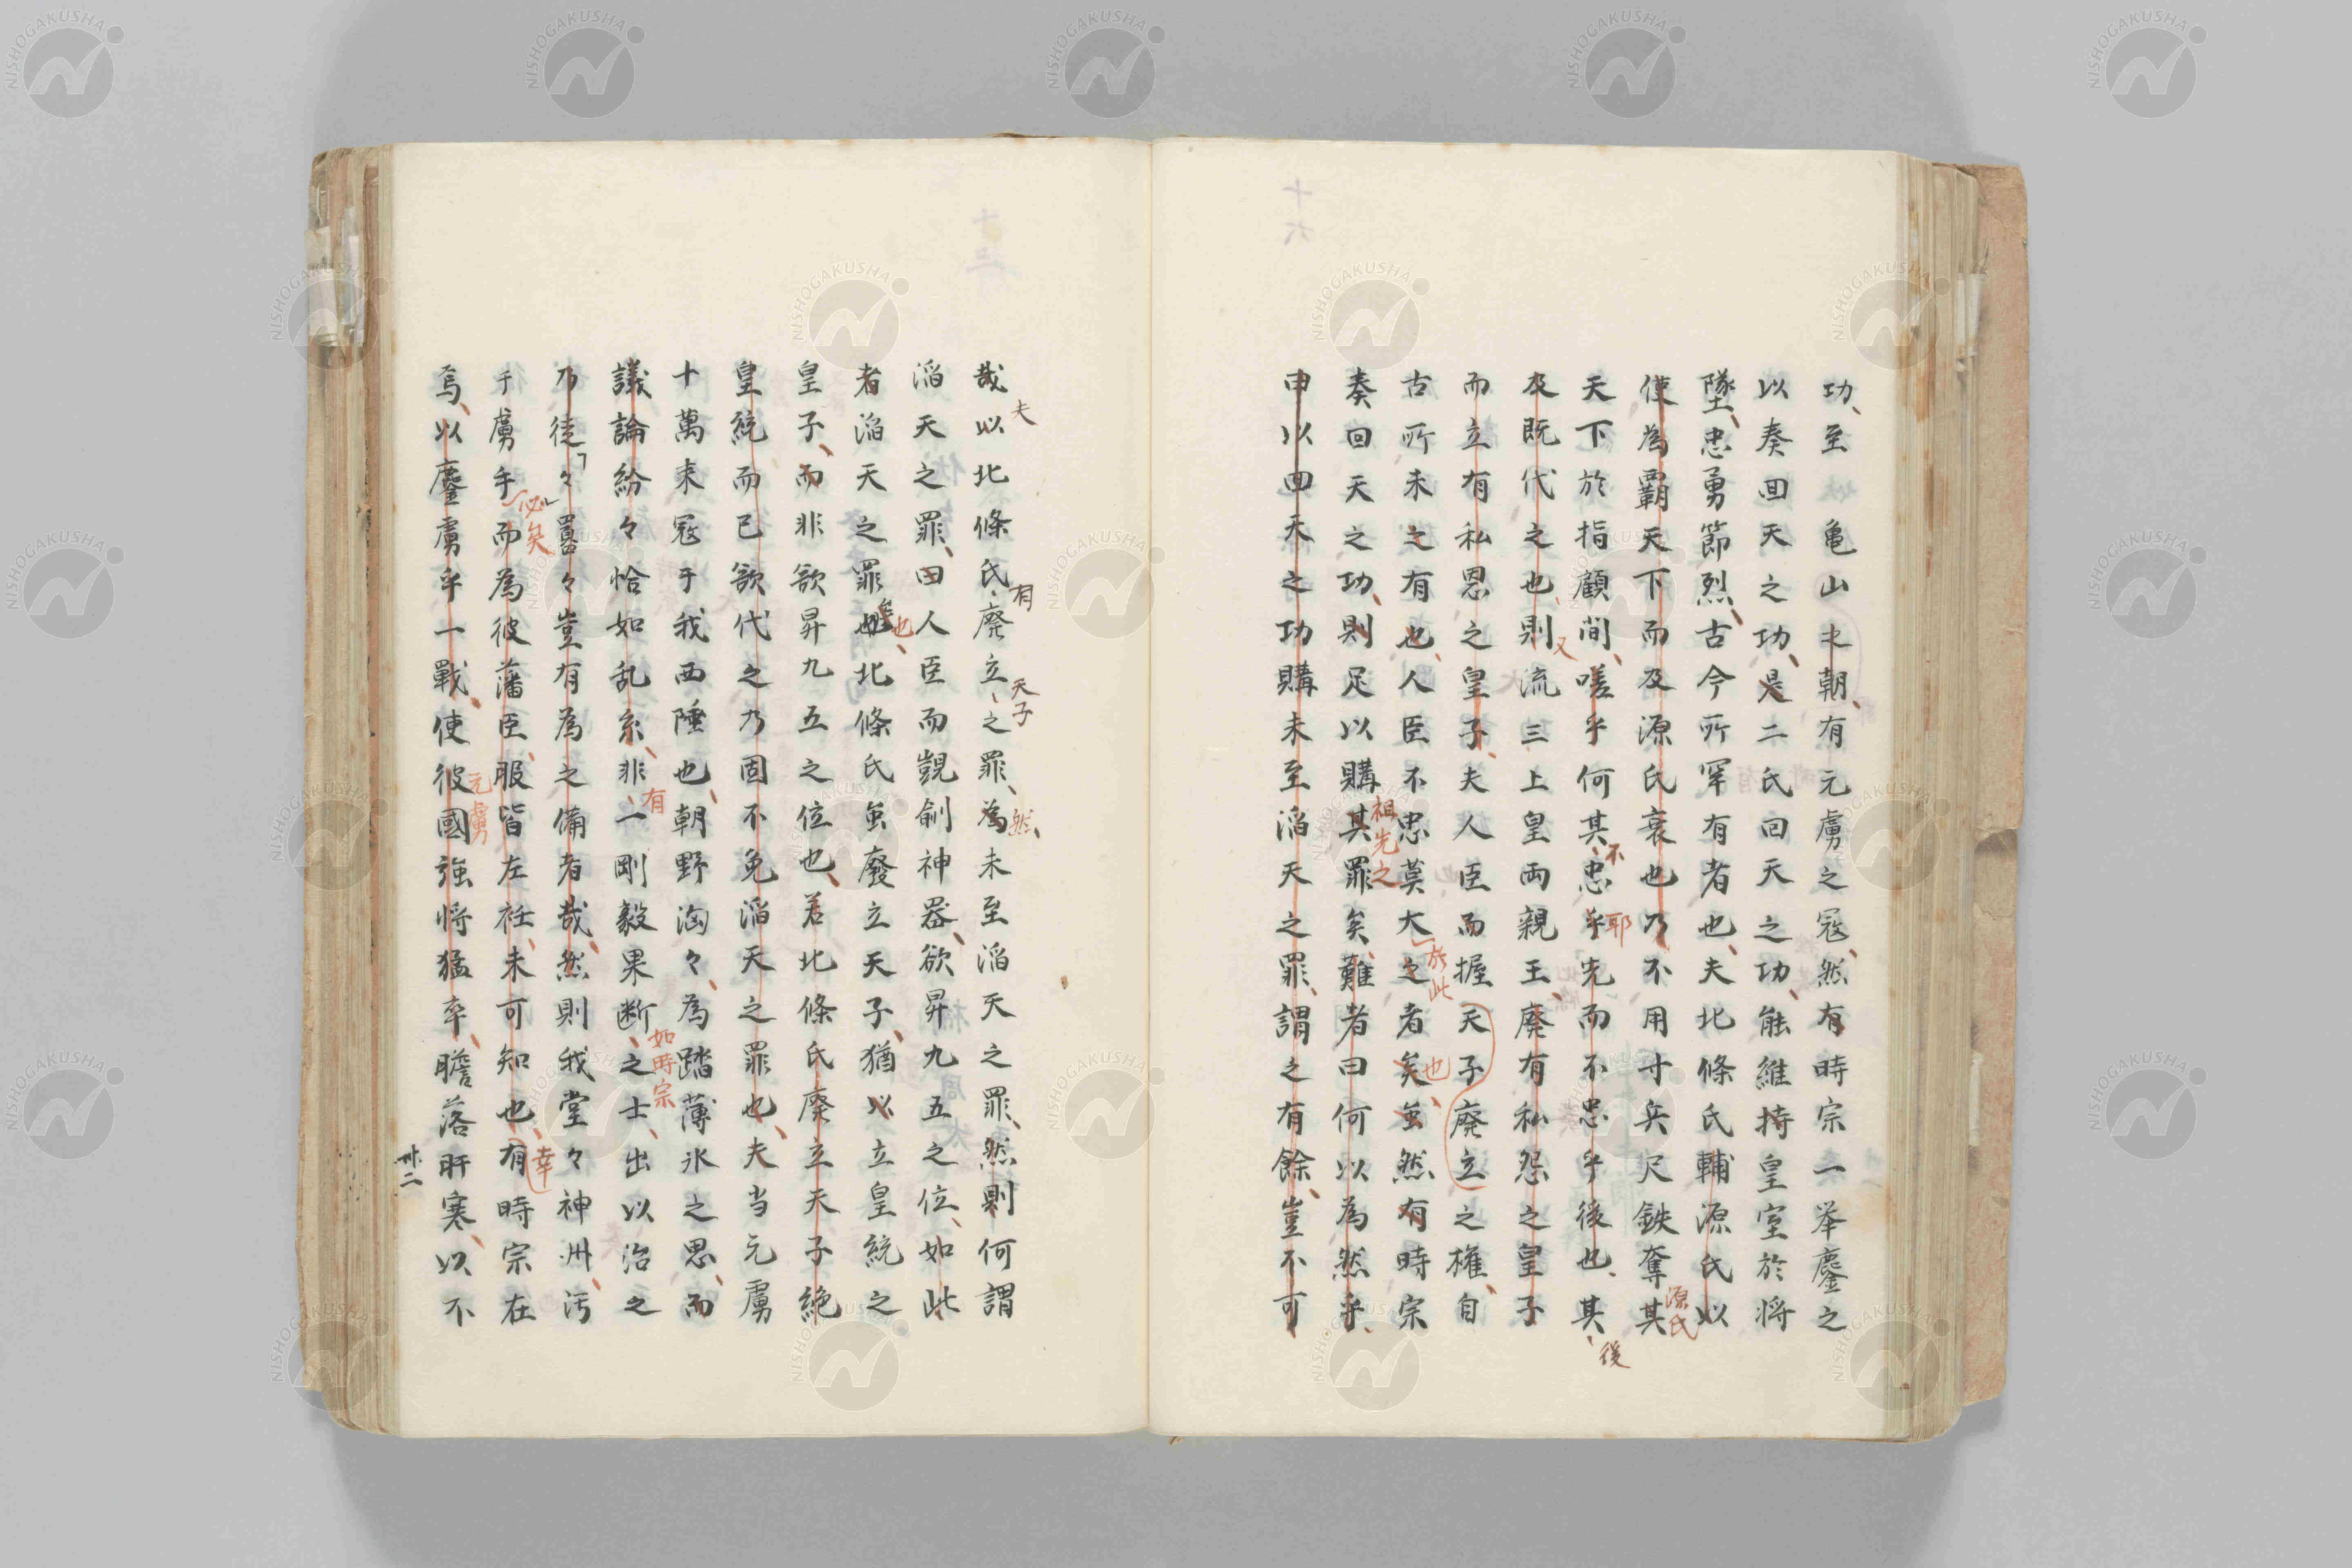 功、至亀山之朝、有元虜之寇、然有時宗一举鏖之
以奏回天之功、是二氏回天之功、能維持皇室於将
墜、忠勇節烈、古今所罕有者也、夫北條氏輔源氏以
使為覇天下而及源氏衰也乃不用寸兵尺鉄奪其
源氏
天下於指顧間、嗟乎何其、忠乎先而不忠乎後也、其
不
耶
後
及既代之也、則流三上皇両親王、廃有私怨之皇子
又
而立有私恩之皇子、夫人臣而握天子廃立之権、自
古所未之有也、人臣不忠莫大之者矣、虽然有時宗
於此
也
奏回天之功、則足以購其罪矣、難者曰何以為然乎、
祖先之
申以回天之功購未至滔天之罪、謂之有餘、豈不可
哉以北條氏廃立之罪、為未至滔天之罪、然則何謂
夫
有
天子
然
滔天之罪、曰人臣而覬覦神器、欲昇九五之位、如此
者滔天之罪也、北條氏虽廢立天子、猶以立皇統之
也
皇子、而非欲昇九五之位也、若北條氏廃立天子絶
皇統而己欲代之乃固不免滔天之罪也、夫当元虜
十萬来寇于我西陲也、朝野洶々、為踏薄氷之思、而
議論紛々恰如乱糸、非、一剛毅果断、之士、出以治之
有
如時宗
乃徒々囂々豈有為之備者哉、然則我堂々神州、汚
于虜手而為彼藩臣、服皆左衽、未可知也、有時宗在
必矣
幸
焉、以鏖虜乎一戰、使彼國強将猛卒、膽落肝寒、以不
元虜
卅二
十六
十三
NISHOGAKUSHA